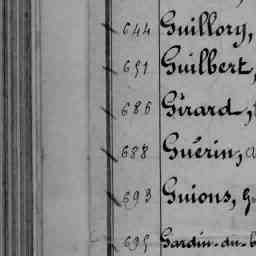 644 Guillory,
651 Guilbert,
686 Girard,
688 Guérin,
693 Guions,
695 Gardin-du-b